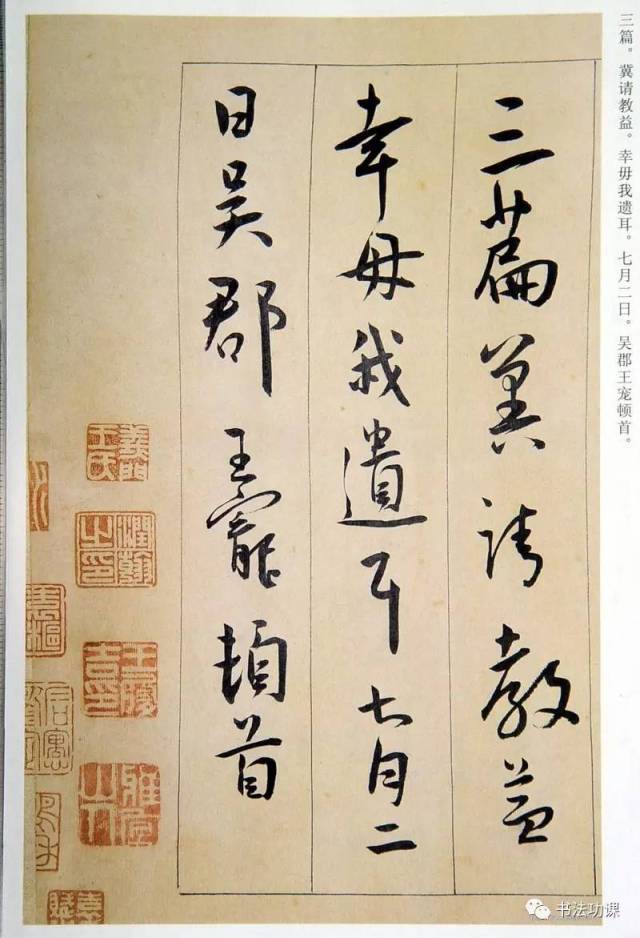 三篇冀请教益
幸毋我遗耳七月二
日吴郡王宠顿首
三篇。冀请教益。幸毋我遗耳。七月二日。吴郡王宠顿首。
书法功课